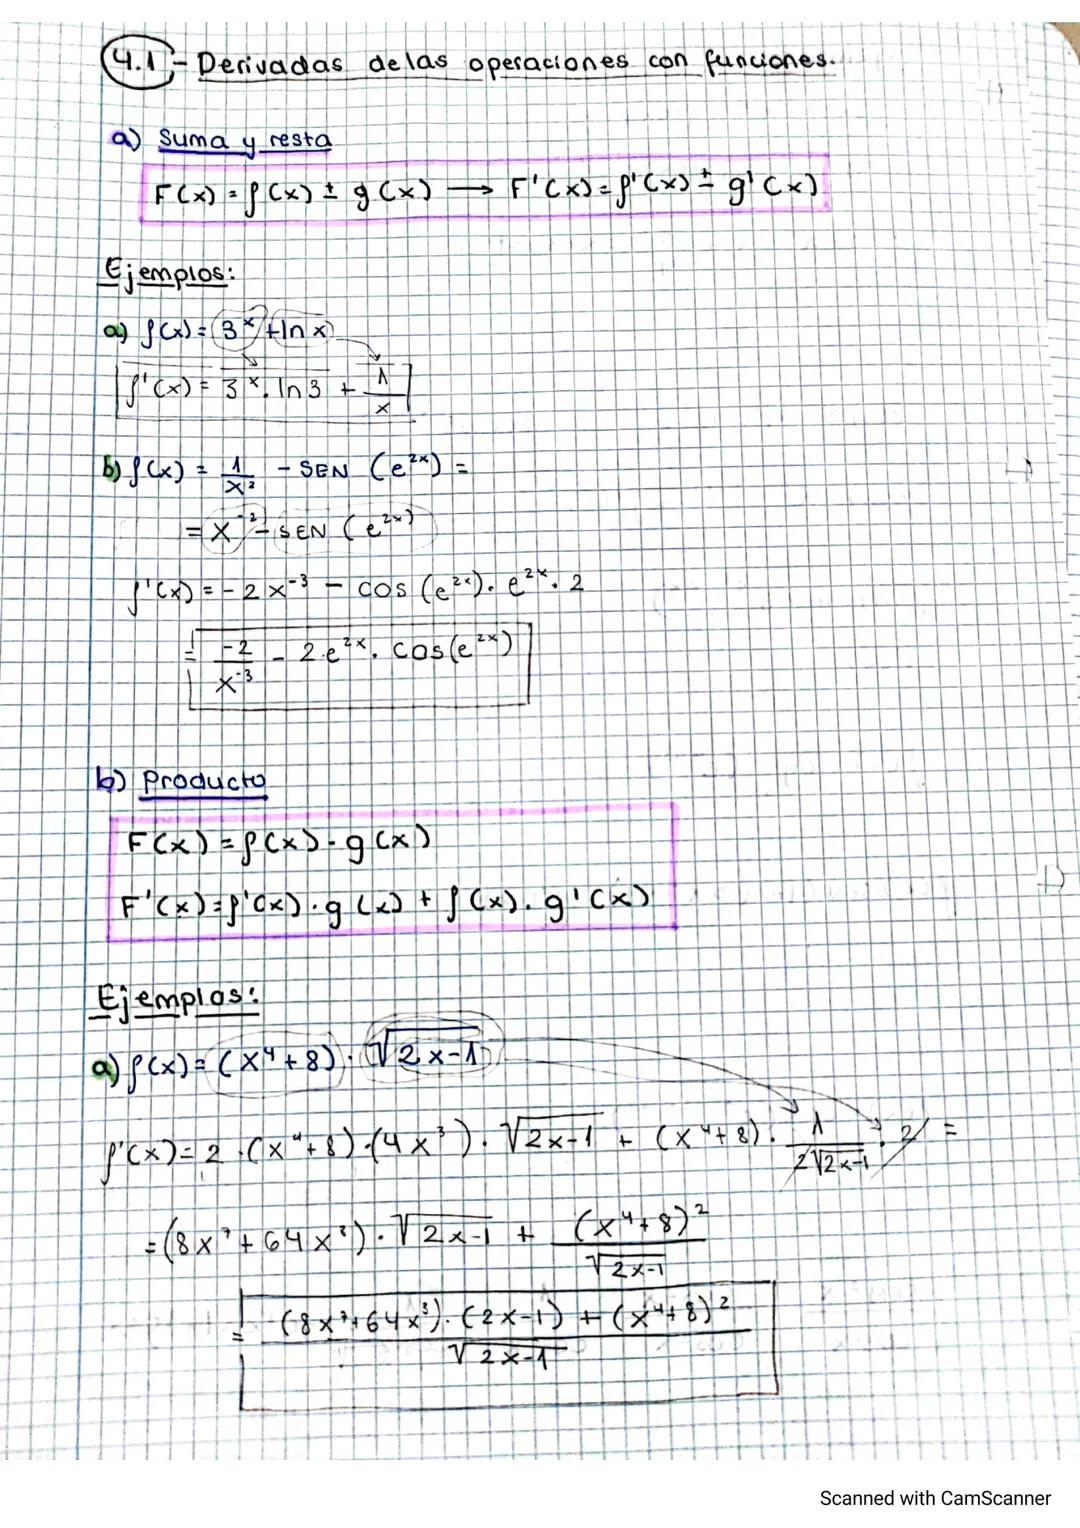 4.1 - Derivadas de las operaciones con funciones.
a) Suma y resta
F(x) = f(x) ± g(x) → F'(x) = f'(x) ± g'(x)
Ejemplos:
a) f(x) = 3^x + ln x
f'(x) = 3^x . ln 3 + 1/x
b) f(x) = 1/x² - SEN (e^2x) =
= x^-2 - SEN (e^2x)
f'(x) = -2x^-3 - cos (e^2x). e^2x. 2
= -2/x^-3 - 2.e^2x. cos(e^2x)
b) Producto
F(x) = f(x) - g(x)
F'(x) = f'(x) · g(x) + f(x). g'(x)
Ejemplos:
a) f(x) = (x⁴+8) · √2x-1
f'(x) = 2 · (x⁴+8) · (4x³) · √2x-1 + (x⁴+8) · 1/2√2x-1 · 2 =
= (8x⁷ + 64x³) · √2x-1 + (x⁴+8)²/√2x-1
= (8x⁷+64x³) · (2x-1) + (x⁴+8)²/√2x-1
Scanned with CamScanner